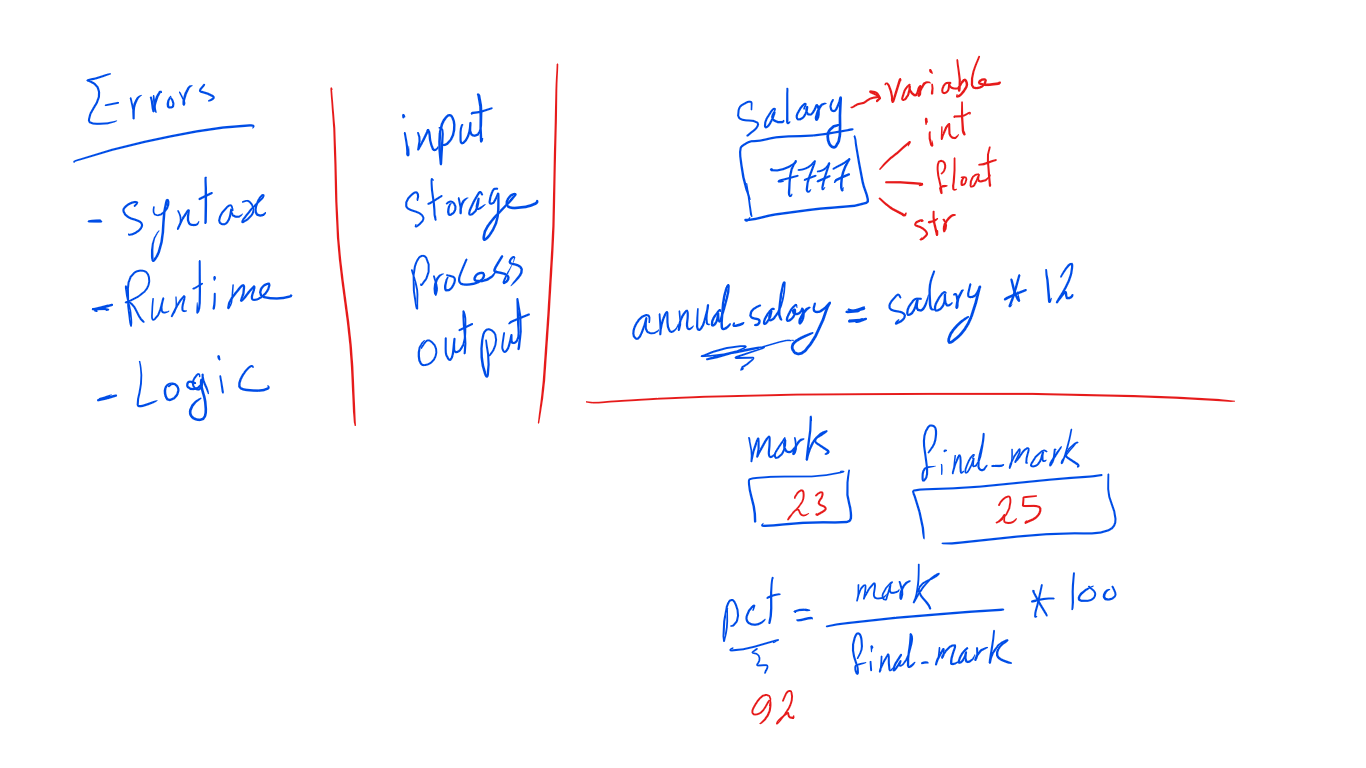 Errors
- Syntax
- Runtime
- Logic
input
Storage
Process
output
Salary → variable
7777
int
float
str
annual_salary = salary * 12
mark
23
final_mark
25
pct = mark / final_mark * 100
92